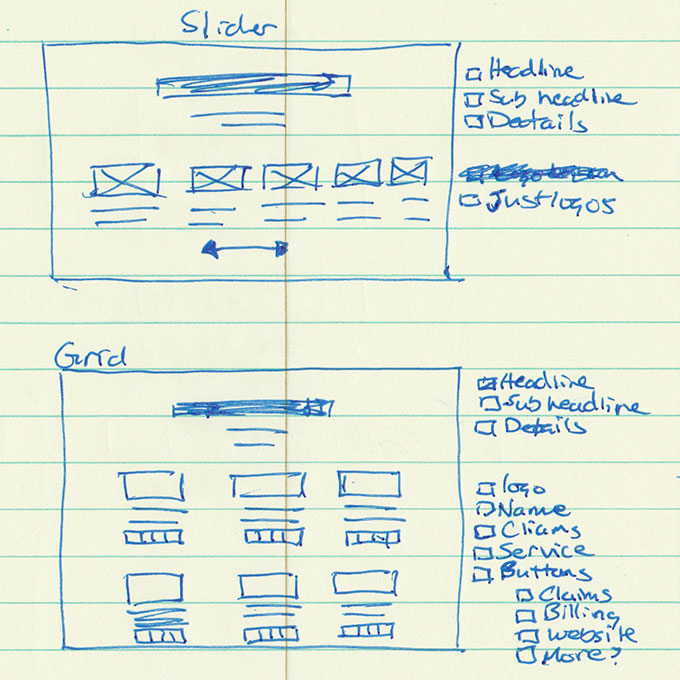 Slider
Headline
Sub headline
Deatails
Just logos
Grid
Headline
Sub headline
Details
logo
Name
Cliams
Service
Buttons
Claims
Billing
website
More?